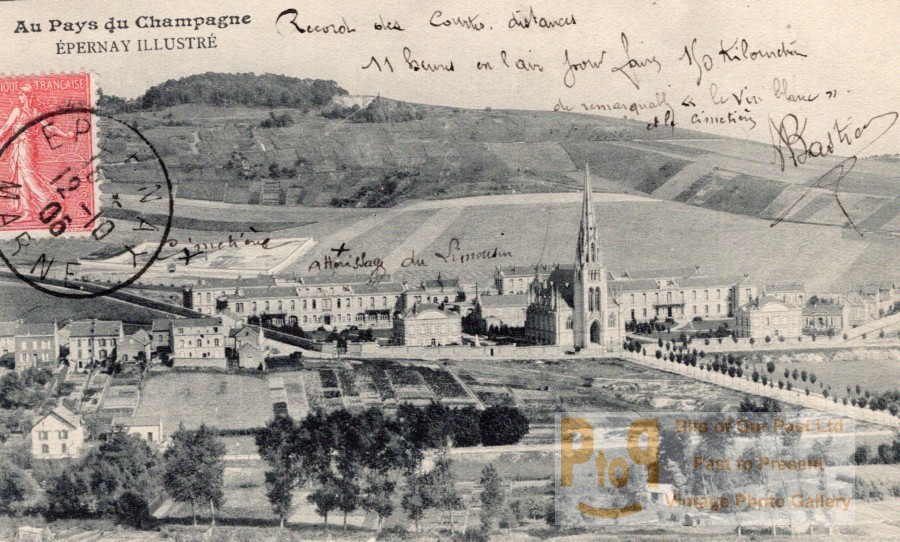 Au Pays du Champagne
ÉPERNAY ILLUSTRÉ
Record des Courtes distances
11 heures en l'air pour faire 150 Kilomètres
de remarquable « le vin blanc »
et le cimetière
Bastier
IQUE FRANÇAISE
EPERNAY
12-10
06
MARNE
Cimetière
+
attérissage du Limousin
PtoP
Bits of Our Past Ltd
Past to Present
Vintage Photo Gallery